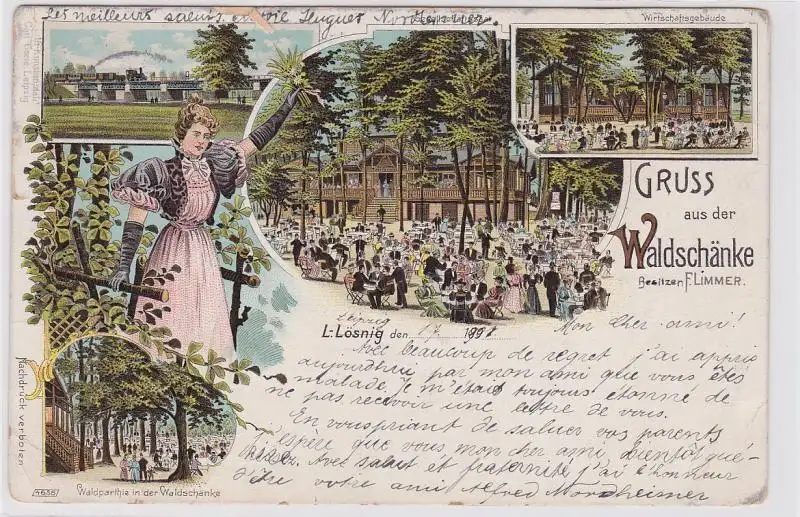 Les meilleurs saluts
Wirtschaftsgebäude
GRUSS
aus der
Waldschänke
Besitzer F. LIMMER.
Leipzig
L.-Lösnig den 1 7 1898
Mon cher ami!
Avec beaucoup de regret j'ai appris
aujourdhui par mon ami que vous êtes
malade. Je m'étais toujours étonné de
ne pas recevoir une lettre de vous.
En vous priant de saluer vos parents
j'espère que vous, mon cher ami, bientôt gué-
Avec salut et fraternité j'ai l'honneur
d'être votre ami Alfred Nordheimer
Nachdruck verboten
4638
Waldparthie in der Waldschänke